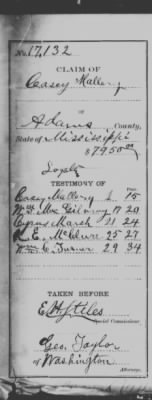 No. 17,132
CLAIM OF
Casey Mallery
Adams County,
State of Mississippi
$7950.00
Loyalty
TESTIMONY OF
Casey Mallery 1 15
Wm. Mc Gilvray 17 20
Cyrus Marsh 21 24
L. E. McClure 25 29
Wm. C. Turner 29 34
TAKEN BEFORE
E. H. Stiles
Special Commissioner.
Geo. Taylor
of Washington
Attorney.